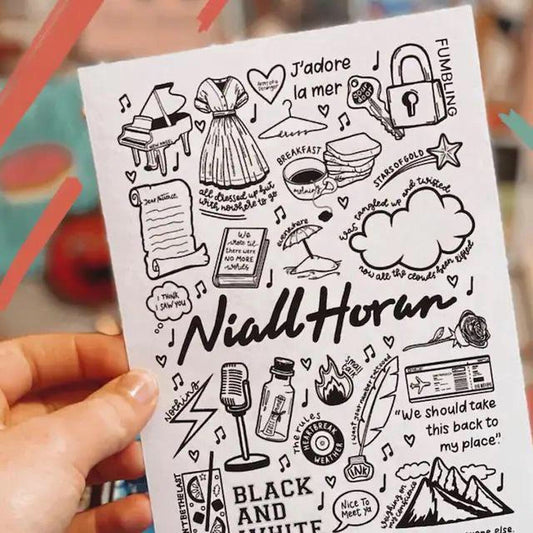 J'adore
la mer
FUMBLING
Arms of a
Stranger
BREAKFAST
STARS OF GOLD
all dressed up but
with nowhere to go
Dear Patience
We
wrote til
there were
NO MORE
words
everywhere
was tangled up and twisted
now all the clouds been lifted
I THINK
I SAW YOU
Niall Horan
Nothing
small talk
The rules
HEARTBREAK
WEATHER
i want your number tattooed
INK
"We should take
this back to
my place."
N'T BE THE LAST
BLACK
AND
WHITE
NICE TO
MEET YA
weighing on
my conscience